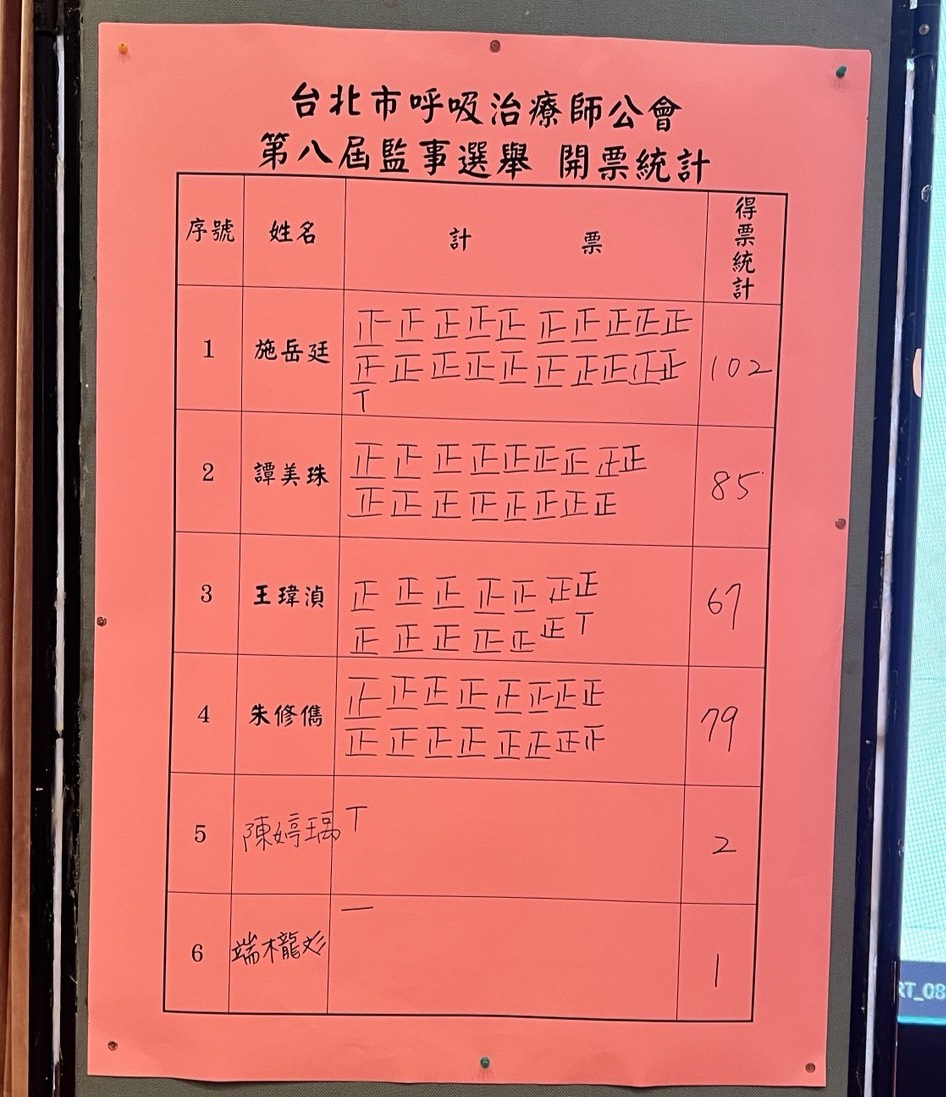 台北市呼吸治療師公會
第八屆監事選舉 開票統計
序號 姓名 計票 得票統計
1 施岳廷 正正正正正正正正正正 102
正正正正正正正正正正
T
2 譚美珠 正正正正正正正正正 85
正正正正正正正正
3 王瑋湞 正正正正正正正 67
正正正正正正T
4 朱修儁 正正正正正正正正 79
正正正正正正正
5 陳婷瑀 T 2
6 端木龍彣 一 1
RT_08